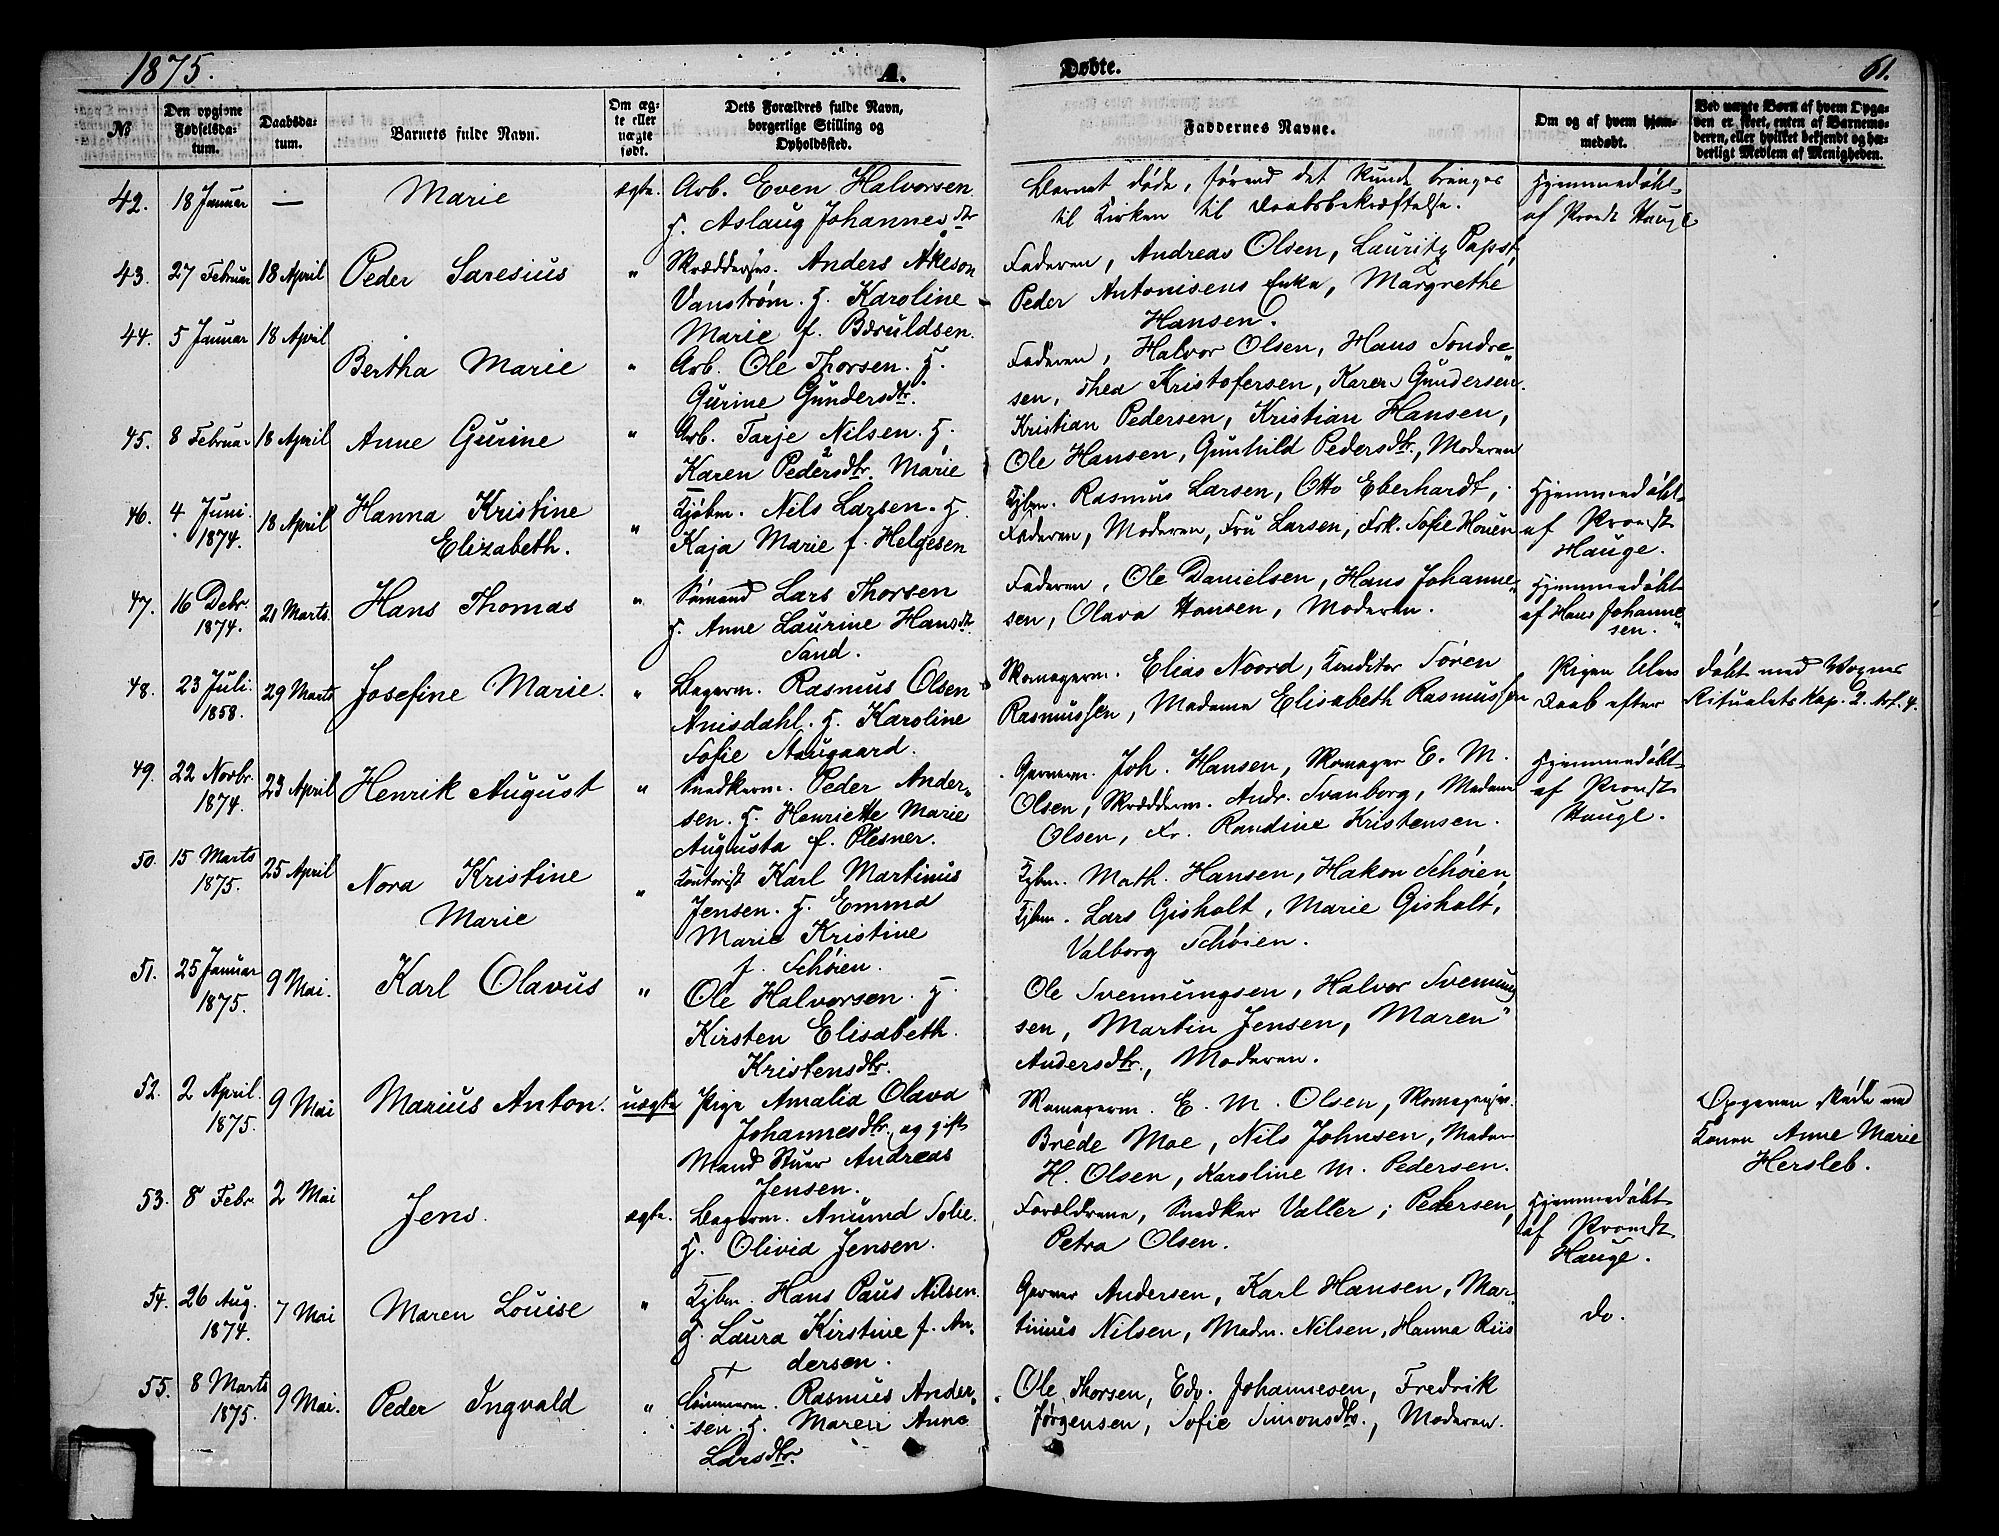 1875.
A.
Døbte.
61.
No
Den opgivne Fødselsdatum.
Daabsdatum.
Barnets fulde Navn.
Om ægte eller uægte født.
Dets Forældres fulde Navn, borgerlige Stilling og Opholdssted.
Faddernes Navne.
Om og af hvem hjemmedøbt.
Ved uægte Børn af hvem Opgaven er skeet, enten af Barnemoderen, eller hvilket bekjendt og hæderligt Medlem af Menigheden.
42. 18 Januar — Marie ægte. Arb. Even Halvorsen Barnet døde, førend det kunde bringes Hjemmedøbt
g. Aslaug Johannesdtr til Kirken til Daabsbekræftelse. af Provdt Hauge
43. 27 Februar 18 April Peder Saresius " Skræddersv. Anders Akeson Faderen, Andreas Olsen, Lauritz Papst,
Vanstrøm. g. Karoline Peder Antonisens Enke, Margrethe
Marie f. Bæruldsen. Hansen.
44. 5 Januar 18 April Bertha Marie " Arb. Ole Thorsen. g. Faderen, Halvor Olsen, Hans Sondre-
Gurine Gundersdtr. sen, Thea Kristofersen, Karen Gundersen.
45. 8 Februar 18 April Anne Gurine " Arb. Tarje Nilsen. g. Kristian Pedersen, Kristian Hansen,
Karen Pedersdtr. Marie Ole Hansen, Gunhild Pedersdtr., Moderen
46. 4 Juni 1874. 18 April Hanna Kristine " Kjøbm. Nils Larsen. g. Kjbm. Rasmus Larsen, Otto Eberhardt, Hjemmedøbt
Elizabeth. Kaja Marie f. Helgesen Faderen, Moderen, Fru Larsen, Frk. Sofie Houen af Provdt
Hauge.
47. 16 Debr. 1874. 21 Marts. Hans Thomas " Sømand Lars Thorsen Faderen, Ole Danielsen, Hans Johanne- Hjemmedøbt
g. Anne Laurine Hansdtr. sen, Olava Hansen, Moderen. af Hans Johanne
Sand. sen.
48. 23 Juli. 1858. 29 Marts Josefine Marie. " Bagerm. Rasmus Olsen Skomagerm. Elias Noord, Konditor Søren døbt med Voxnes
Anisdahl. g. Karoline Rasmussen, Madame Elisabeth Rasmussen Daab efter Ritualets Kap. 2. Art. 4.
Sofie Naugaard.
49. 22 Novbr. 1874. 23 April Henrik August " Snedkerm. Peder Ander- Garverm. Joh. Hansen, Skomager E. M. Hjemmedøbt
sen. g. Henriette Marie Olsen, Skrædderm. Andr. Svanborg, Madam af Provdt
Augusta f. Plesner. Olsen, Fr. Randine Kristensen. Hauge.
50. 15 Marts 1875. 25 April Nora Kristine " Kontorist Karl Martinus Kjbm. Math. Hansen, Hakon Schøien,
Marie Jensen. g. Emma Kjbm. Lars Gisholt, Marie Gisholt,
Marie Kristine Valborg Schøien.
f. Schøien.
51. 25 Januar 1875. 9 Mai. Karl Olavus " Ole Halvorsen. g. Ole Svennungsen, Halvor Svennung
Kirsten Elisabeth. sen, Martin Jensen, Maren
Kristensdtr. Andersdtr., Moderen.
52. 2 April. 1875. 9 Mai Marius Anton. uægte Pige Amalia Olava Skomagerm. E. M. Olsen, Skomagersv. Opgaven skede ved
Johannesdtr. og gift Brede Moe, Nils Johnsen, Madam Konen Anne Marie
Mand Stuer Andreas H. Olsen, Karoline M. Pedersen. Hersleb.
Jensen.
53. 8 Febr 2 Mai Jens. ægte. Bagerm. Anund Solie. Forældrene, Snedker Valler, Pedersen, Hjemmedøbt
g. Olivia Jensen. Petra Olsen. af Provdt
Hauge.
54. 26 Aug. 1874. 7 Mai Maren Louise " Kjbm. Hans Paus Nilsen. Garver Andersen, Karl Hansen, Mar- do.
g. Laura Kirstine f. An- tinius Nilsen, Madm. Nilsen, Hanna Riis
dersen.
55. 8 Marts 1875. 9 Mai. Peder Ingvald " Tømmerm. Rasmus Ander- Ole Thorsen, Edv. Johannesen, Fredrik
sen. g. Maren Anne Jørgensen, Sofie Simonsdtr., Moderen.
Larsdtr.